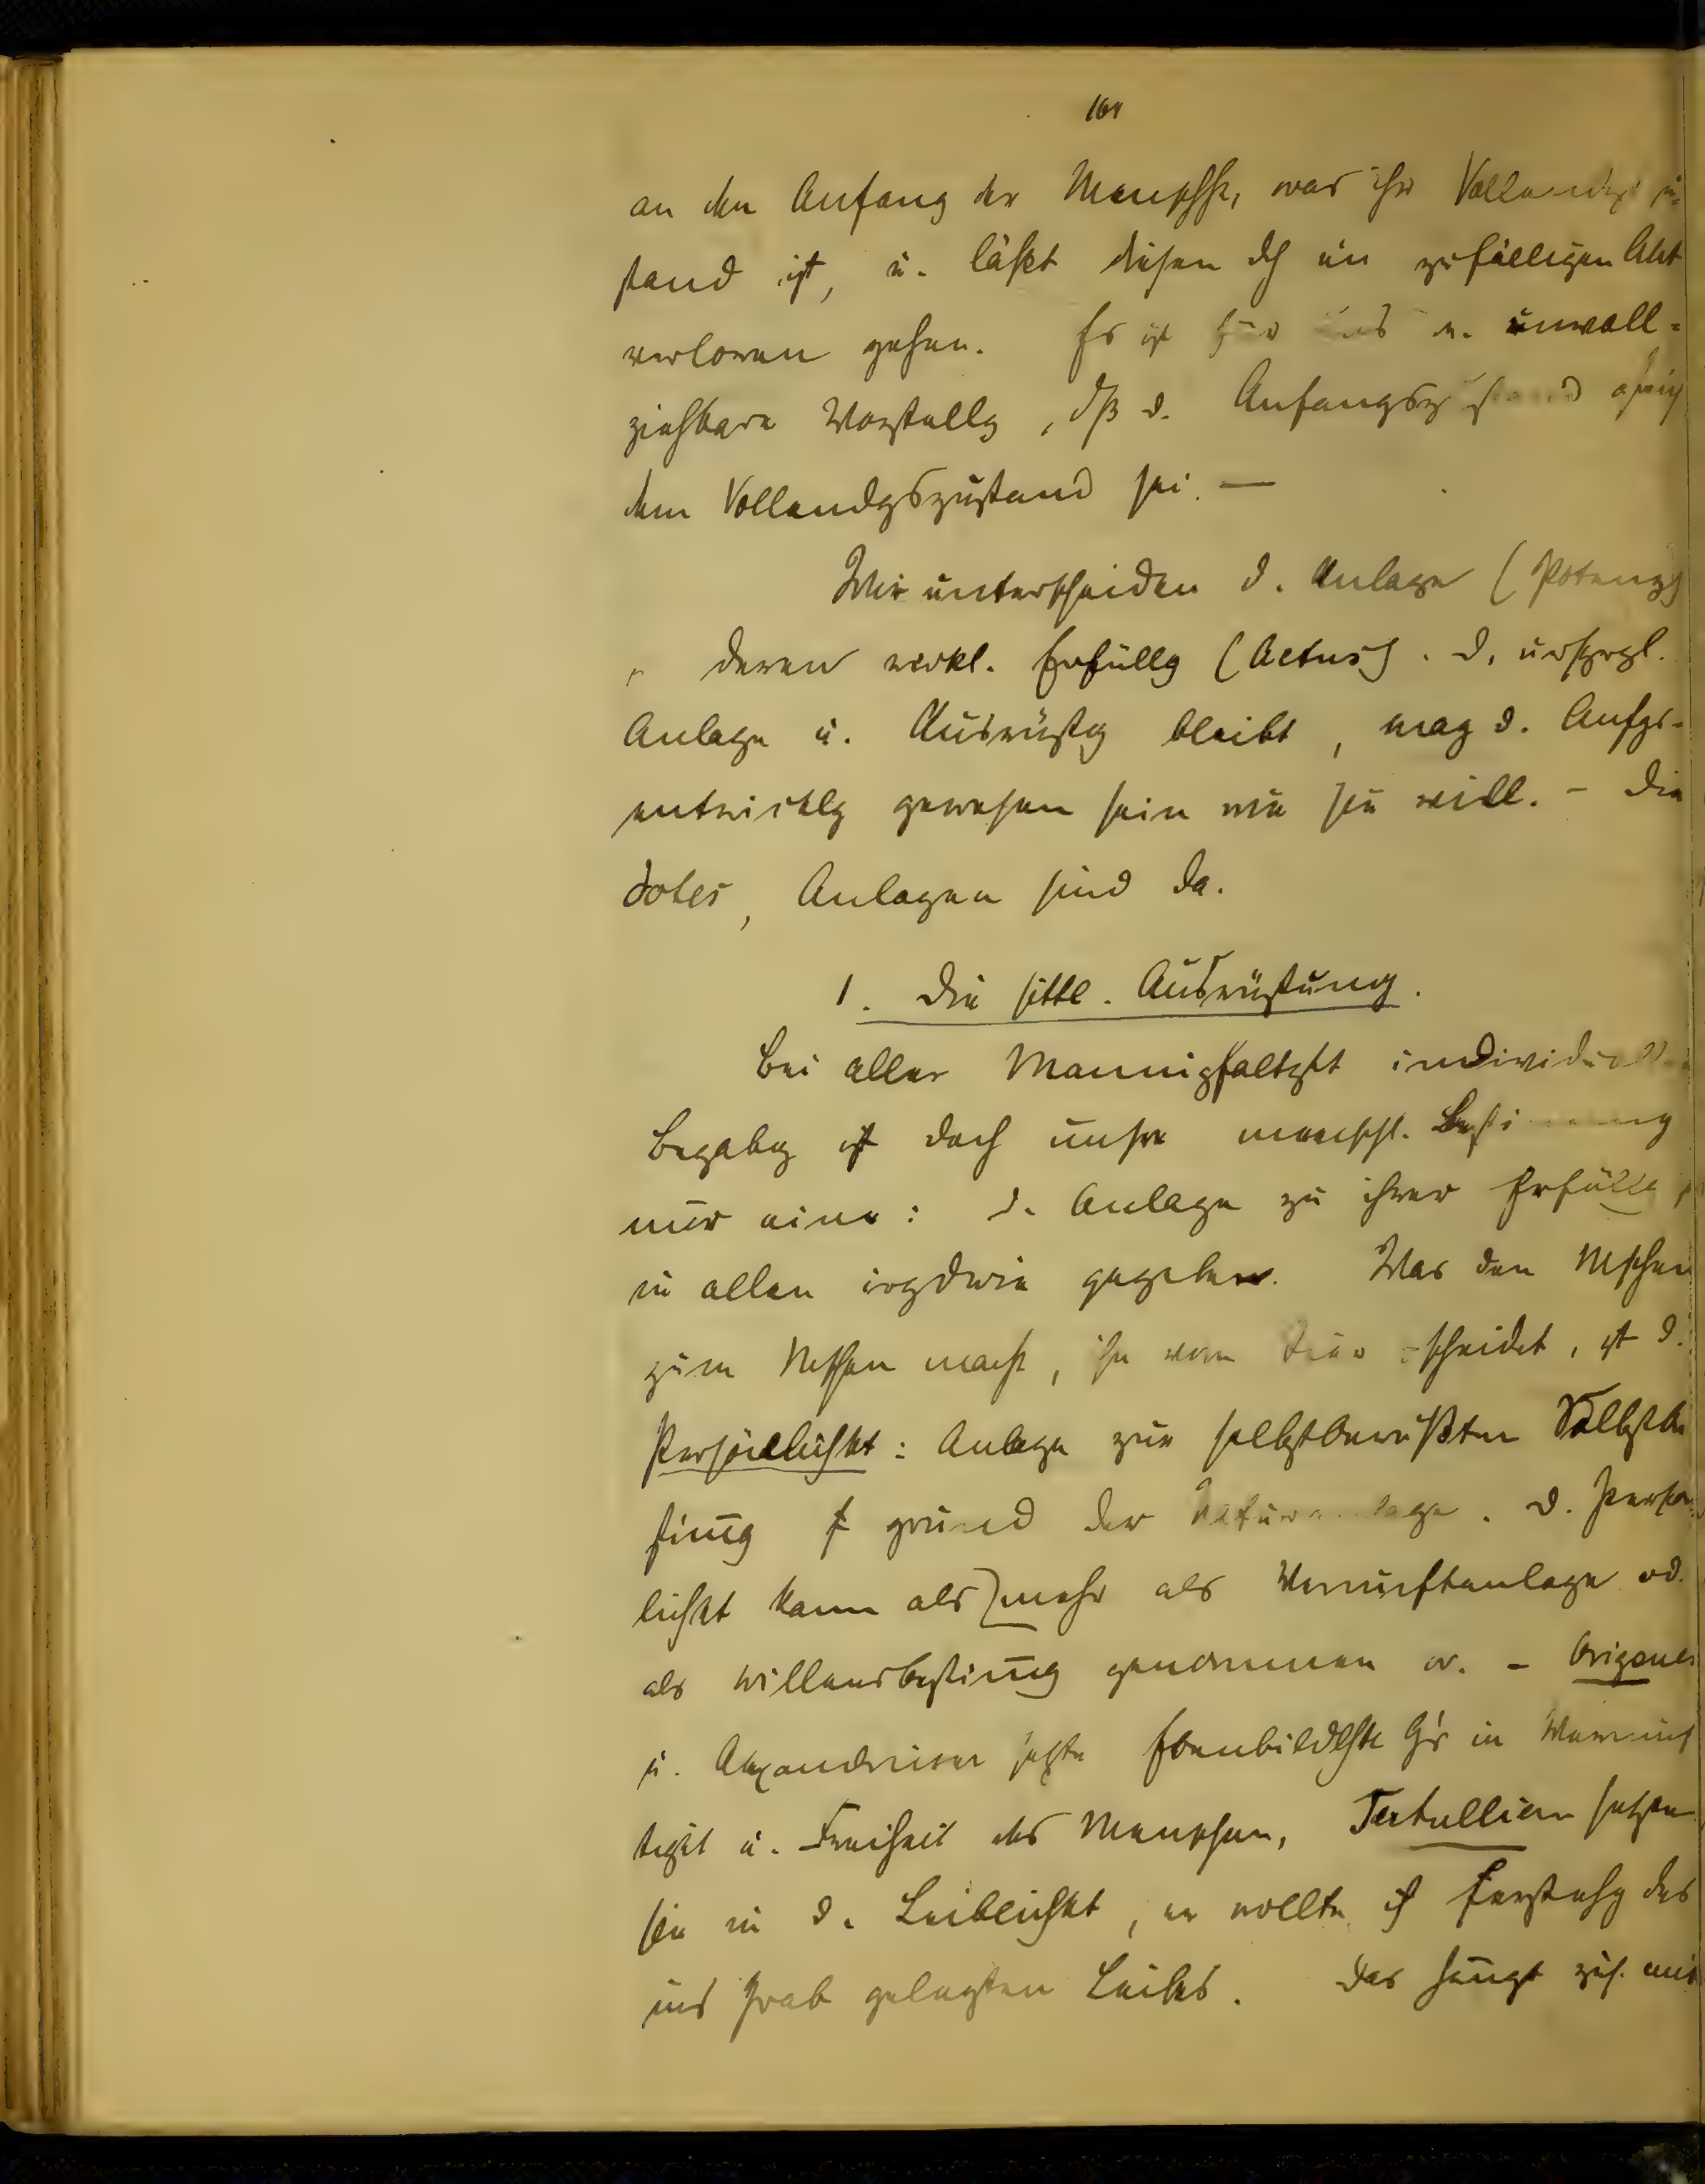 164
an den Anfang der Menschh, was ihr Vollendgs zu-
stand ist, u. läßt diesen dch ein zufälligen Akt
verloren gehen. Es ist für uns e. unvoll-
ziehbare Vorstellg, dß d. Anfangszustand
dem Vollendgszustand sei. —
Wir unterscheiden d. Anlage (Potenz)
deren wirkl. Erfüllg (Actus). D. ursprgl.
Anlage u. Ausrüstg bleibt, mag d. Anfgs-
entwicklg gewesen sein wie sie will. - Die
dotes, Anlagen sind da.
1. Die sittl. Ausrüstung.
Bei aller Mannigfaltgkt individuellen
Begabg ist doch unsre menschl. Bestimmung
nur eine: d. Anlage zu ihrer Erfüllg
in allen irgdwie gegeben. Was den Mschen
zum Mschen macht, ihn vom Tier scheidet, ist d.
Persönlichkt: Anlage zur selbstbewußten Selbstbe
stimmg grund der Naturanlage. D. Persön
lichkt kann als mehr als Vernunftanlage od.
als Willensbestimmg genommen w. - Origenes
u. Alexandriner setzte Ebenbildlchkt G's in Vernünf
tigkt u. Freiheit des Menschen, Tertullian setzte
sie in d. Leiblichkt, er wollte Erstehg des
ins Grab gelegten Leibes. Das hängt zus. mit